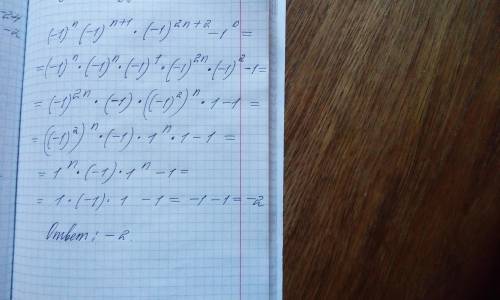 -24
-2
(-1)ⁿ(-1)ⁿ⁺¹·(-1)²ⁿ⁺²-1⁰=
=(-1)ⁿ·(-1)ⁿ·(-1)¹·(-1)²ⁿ·(-1)²-1=
=(-1)²ⁿ·(-1)·((-1)²)ⁿ·1-1=
=((-1)²)ⁿ·(-1)·1ⁿ·1-1=
=1ⁿ·(-1)·1ⁿ-1=
=1·(-1)·1-1=-1-1=-2
Ответ: -2.